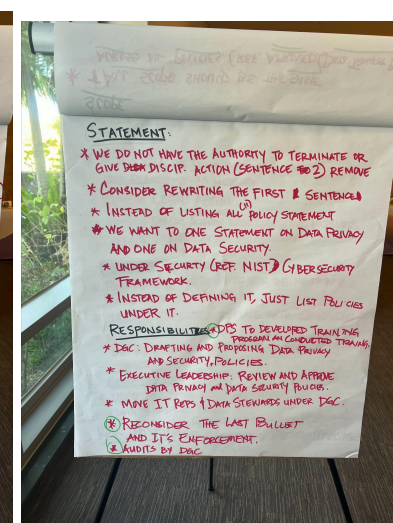 STATEMENT:
* WE DO NOT HAVE THE AUTHORITY TO TERMINATE OR
GIVE DISCIP. ACTION (SENTENCE 2) REMOVE
* CONSIDER REWRITING THE FIRST SENTENCE
* INSTEAD OF LISTING ALL POLICY STATEMENT
* WE WANT TO ONE STATEMENT ON DATA PRIVACY
AND ONE ON DATA SECURITY.
* UNDER SECURITY (REF. NIST) CYBERSECURITY
FRAMEWORK.
* INSTEAD OF DEFINING IT, JUST LIST POLICIES
UNDER IT.
RESPONSIBILITIES * DPS TO DEVELOPED TRAINING
PROGRAM AN CONDUCTED TRAINING.
* DGC: DRAFTING AND PROPOSING DATA PRIVACY
AND SECURITY POLICIES.
* EXECUTIVE LEADERSHIP: REVIEW AND APPROVE
DATA PRIVACY AND DATA SECURITY POLICIES.
* MOVE IT REPS & DATA STEWARDS UNDER DGC.
* RECONSIDER THE LAST BULLET
AND IT'S ENFORCEMENT.
* AUDITS BY DGC